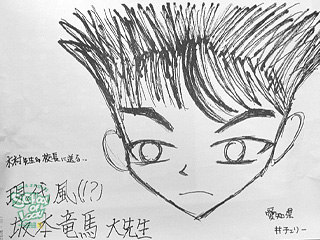 木村先生の校長に送る…
現代風(!?)
坂本竜馬 大先生
愛知県
井チェリー